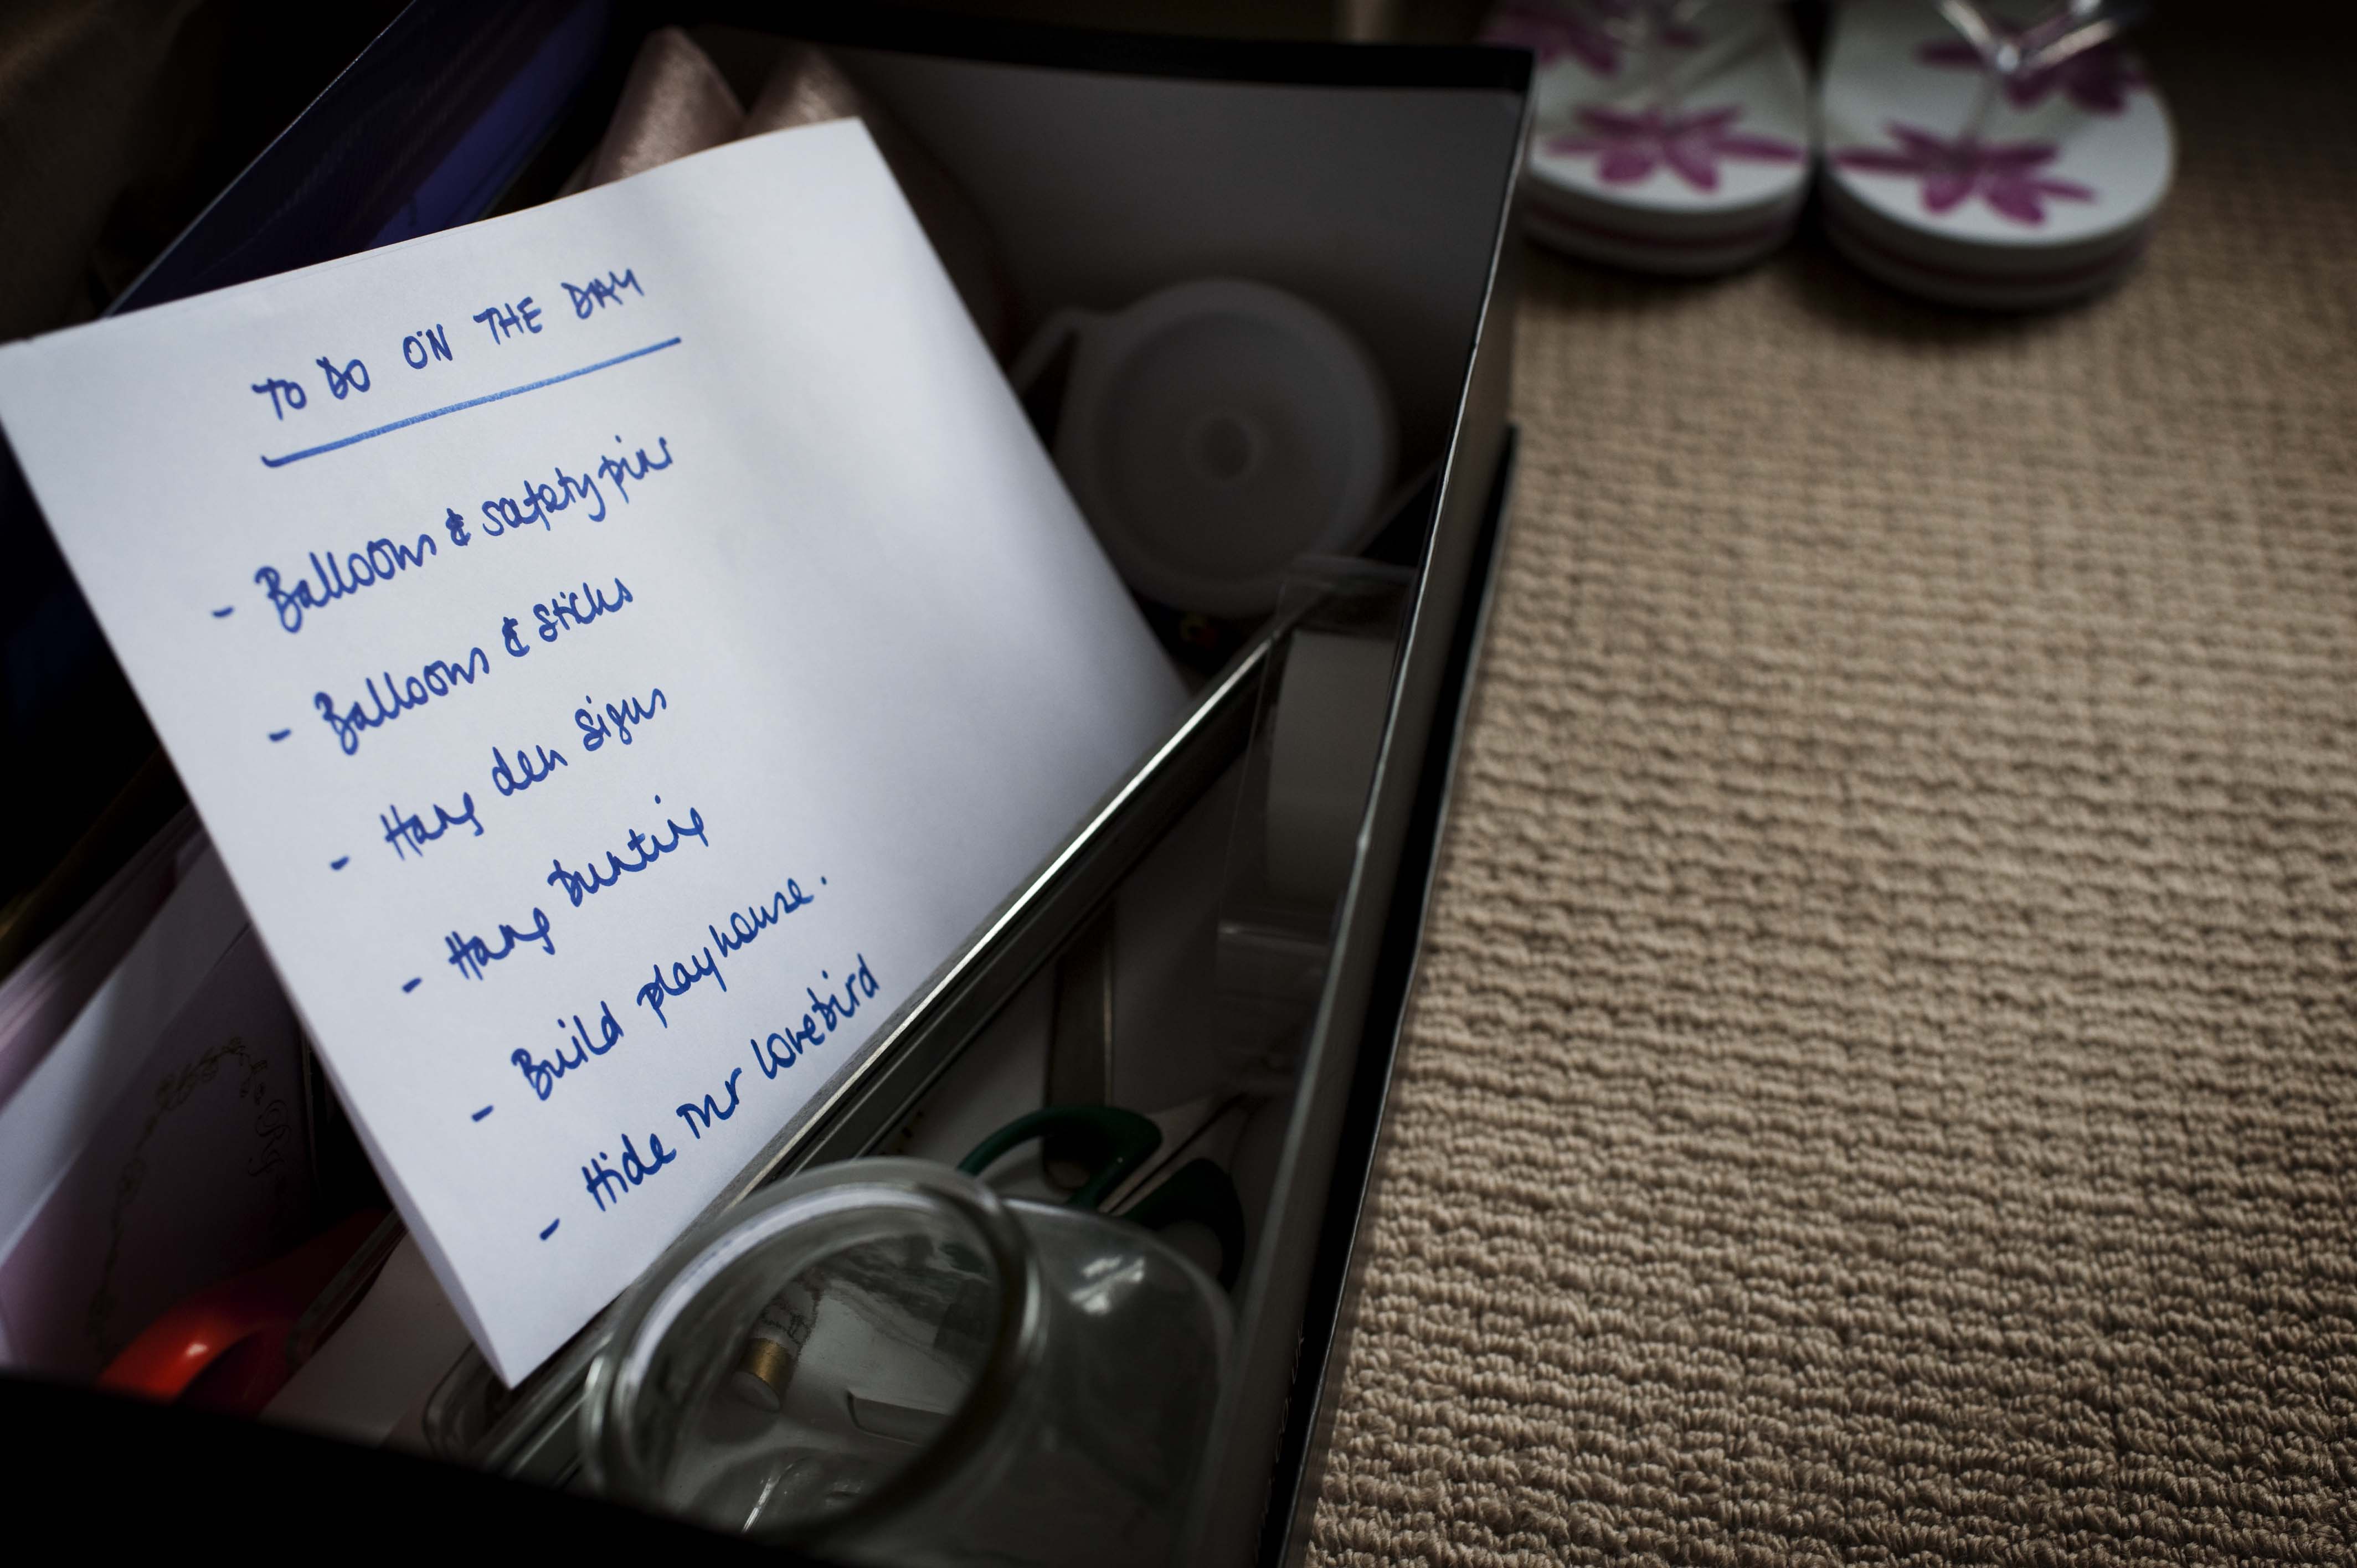 TO DO ON THE DAY
- Balloons & safety pins
- Balloons & sticks
- Hang den signs
- Hang bunting
- Build playhouse.
- Hide Mr lovebird